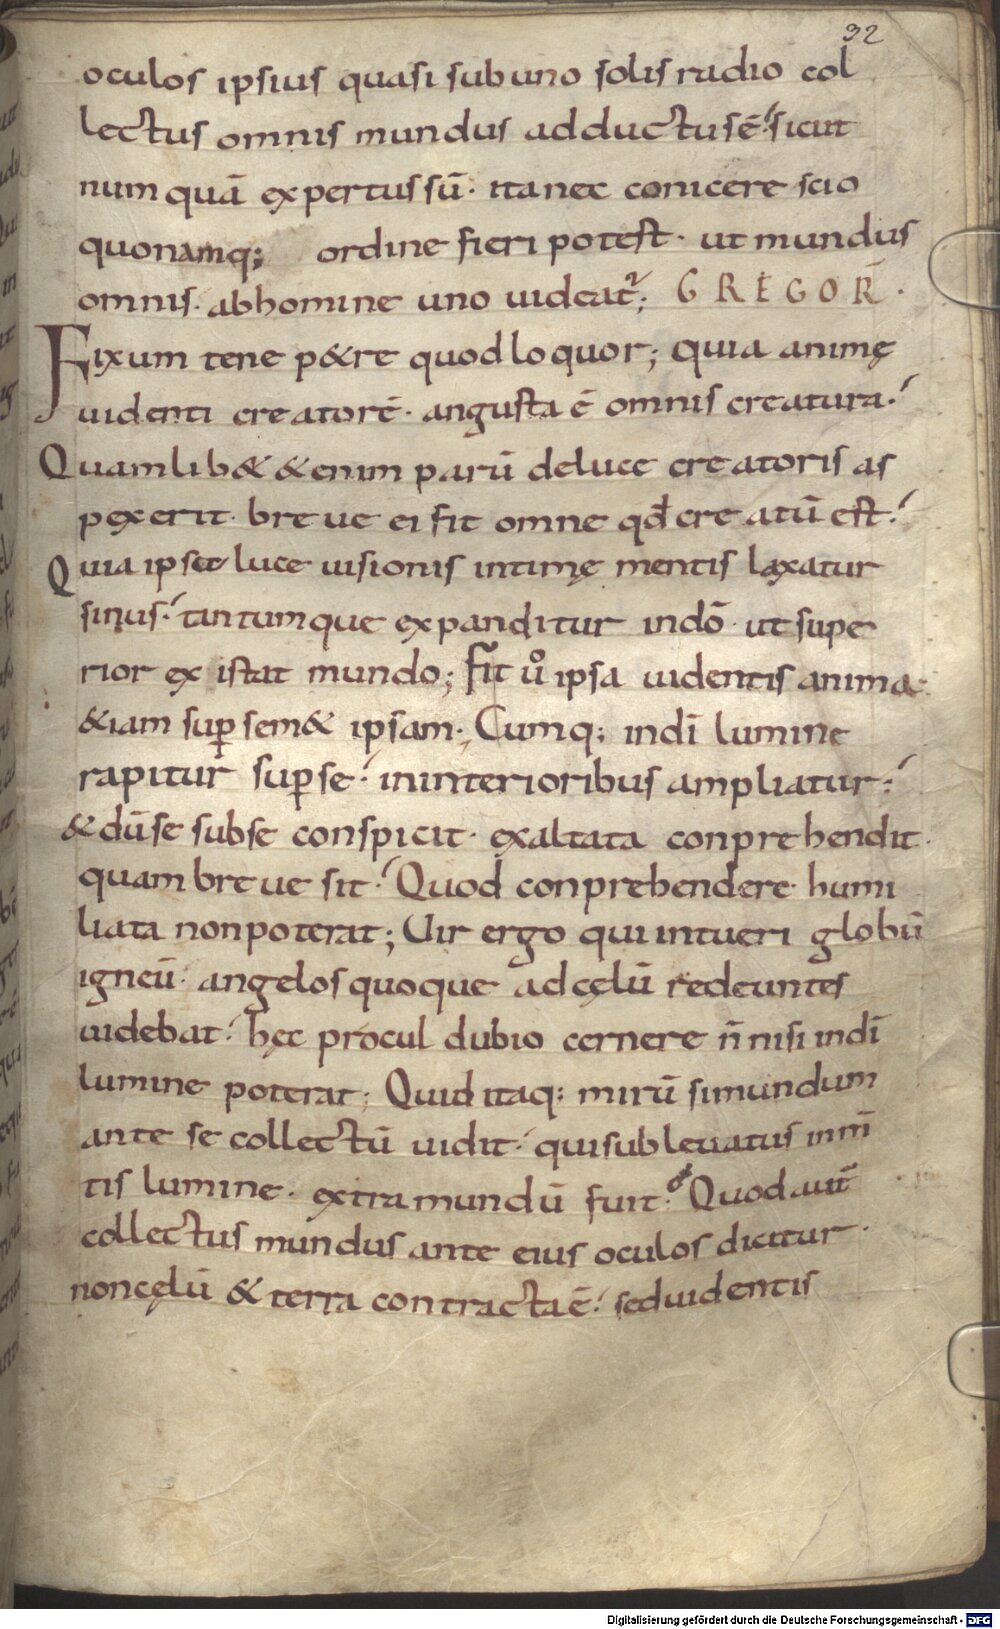 32
oculos ipsius quasi sub uno solis radio col
lectus omnis mundus adductus ē sicut
numquā expertus sū· ita nec conicere scio
quonamq; ordine fieri potest· ut mundus
omnis· abhomine uno uideat᷑; GREGOR̄·
Fixum tene p&re quod loquor; quia animę
uidenti creatorē· angusta ē omnis creatura·
Quamlib& &enim parū deluce creatoris as
pexerit· breue ei fit omne qđ creatū est·
Quia ipsa luce uisionis intimę mentis laxatur
sinus· tantumque expanditur indō· ut supe
rior existat mundo; Fit uͦ ipsa uidentis anima
&iam suꝑ sem& ipsam· Cumq; indī lumine
rapitur suꝑ se· ininterioribus ampliatur·
& dū se sub se conspicit· exaltata conprehendit·
quam breue sit· Quod conprehendere humi
liata non poterat; Uir ergo qui intueri globū
igneū· angelos quoque ad cęlū redeuntes
uidebat· hęc procul dubio cernere n̄ nisi indī
lumine poterat; Quid itaq; mirū si mundum
ante se collectū uidit· qui subleuatus in m̄
tis lumine· extra mundū fuit· Quod aut̄
collectus mundus ante eius oculos dicitur·
non cęlū & terra contracta ē· sed uidentis
Digitalisierung gefördert durch die Deutsche Forschungsgemeinschaft - DFG